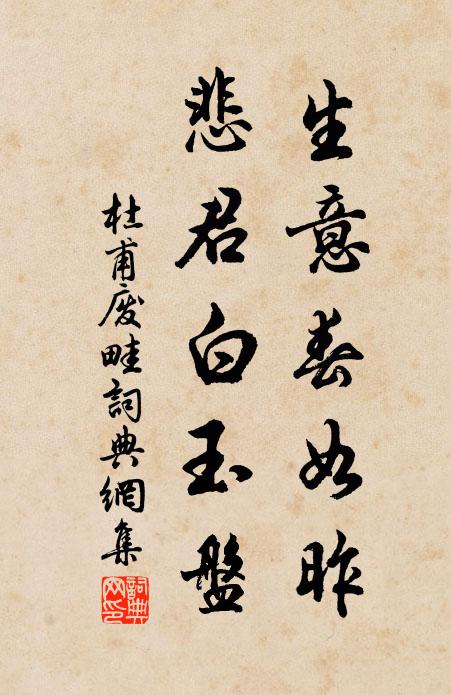 生意春如昨
悲君白玉盤
杜甫廢畦詞典網集
詞典网印